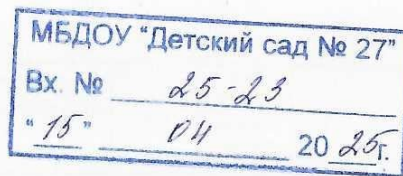 МБДОУ "Детский сад № 27"
Вх. № 25-23
"15" 04 2025г.